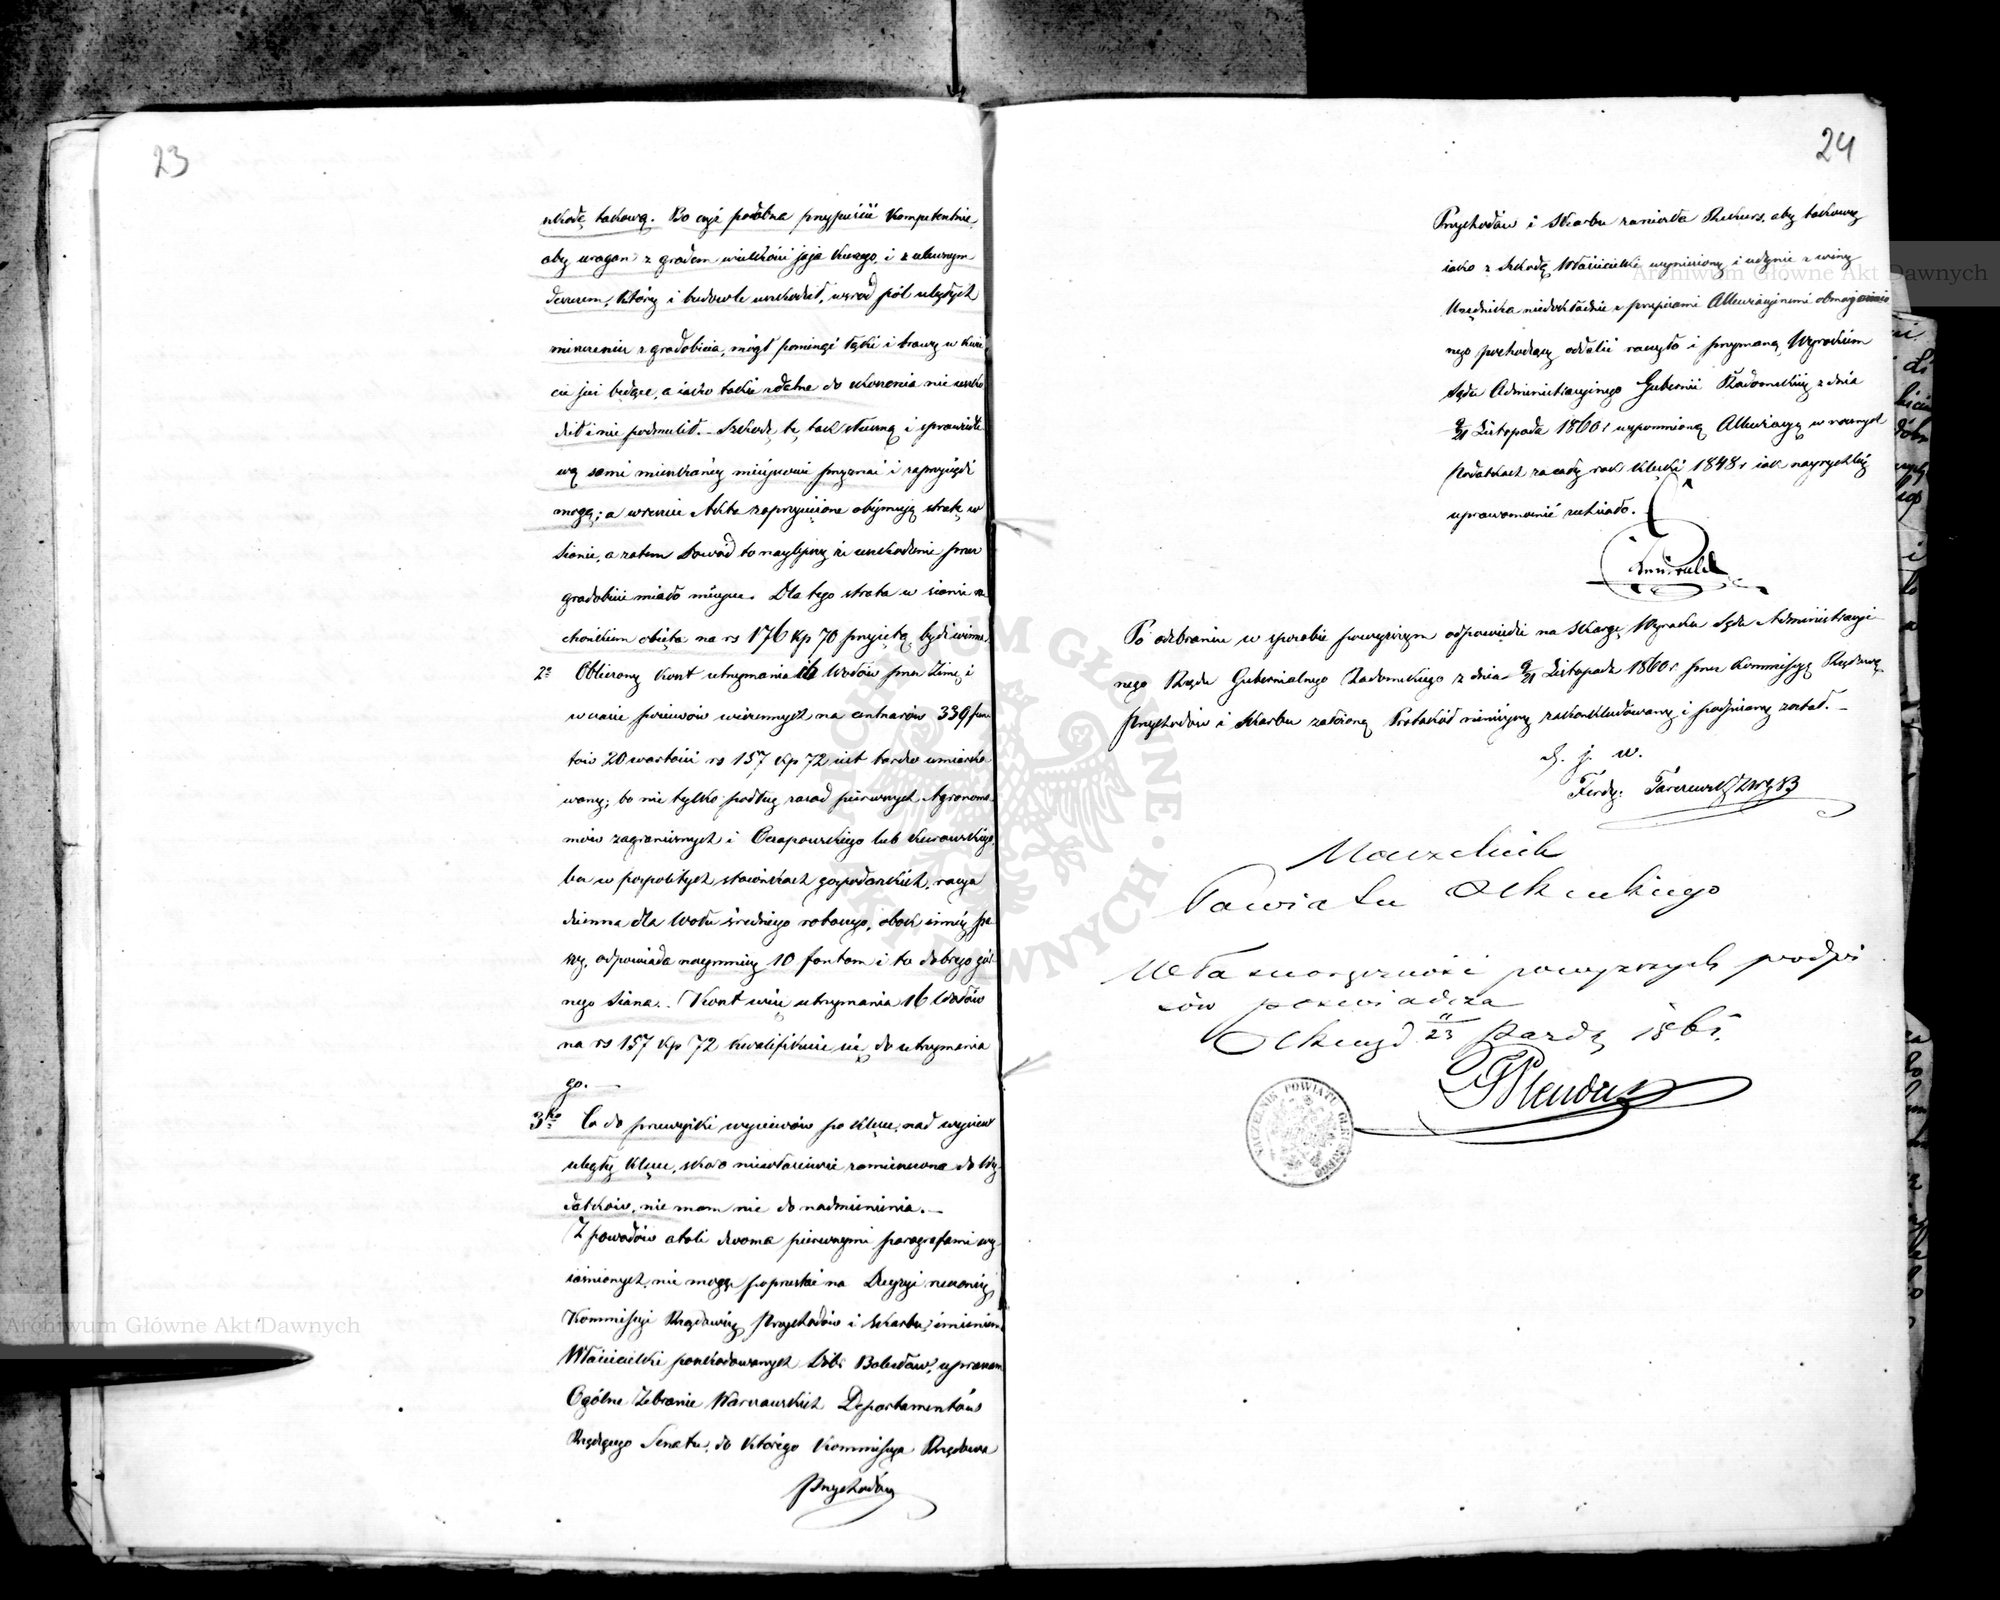 23
szkodę takową. Bo czyż podobna przypuścić kompetentnie,
aby uragan z gradem wielkości jaja kurzego, i z ulewnym
deszczem, który i budowle uszkodził, wsrod pól uległych
zniszczeniu z gradobicia, mógł pominąć łąki i trawy w kwie
cie już będące, a iako takie zdatne do skoszenia nie uszko
dził i nie podmulił. – Szkodę tę, tak słuszną i sprawiedli
wą sami mieszkańcy mieyscowi przyznać i zaprzysiądz
mogą; a wreszcie Akta zaprzysiężone obeymują stratę w
sianie, a zatem dowód to naylepszy że uszkodzenie przez
gradobicie miało mieysce. Dla tego strata w sianie ra
chunkiem obięta na rs 176 kp 70 przyiętą bydź winna.
2o Obliczony koszt utrzymania 16 Wołów przez Zimę, i
w czasie posiewów wiosennych na centnarów 339 fun
tów 20 wartości rs 157 kp 72 iest bardzo umiarko
wany; bo nie tylko podług zasad pierwszych Agrono
mów zagranicznych i Oczapowskiego lub Kurowskiego,
lecz w pospolitych stosunkach gospodarskich, racya
dzienna dla Wołu średniego roboczego, obok inney pa
szy, odpowiada naymniey 10 funtom i to dobrego gór
nego Siana. Koszt więc utrzymania 16 Wołów
na rs 157 kp 72 kwalifikuie się do utrzymania
go. —
3tio Co do przewyżki wysiewów po klęsce, nad wysiew
uległy klęsce, iako niewłaściwie zamieszczona do Wy
datków, nie mam nic do nadmienienia. —
Z powodów atoli dwoma pierwszemi paragrafami wy
iaśnionych, nie mogę poprzestać na Decyzyi rzeczoney
Kommissyi Rządowey Przychodów i Skarbu; imieniem
Właścicielki poszkodowanych Dóbr Bolesław, upraszam
Ogólne Zebranie Warszawskich Departamentów
Rządzącego Senatu, do którego Kommissya Rządowa
Przychodów
24
Przychodów i Skarbu zaniosła Rekurs, aby takowy
iako z szkodą Właścicielki wyniesiony i iedynie z winy
Urzędnika niedokładnie z przepisami Allewiacyinemi obznaiomio
nego pochodzący oddalić raczyło i przyznaną Wyrokiem
Sądu Administracyinego Gubernii Radomskiey z dnia
9/21 Listopada 1860 r wspomnioną Allewiacyą w rocznych
Podatkach za cały rok klęski 1848 r iak nayrychley
uprawomocnić zechciało.
Po odebraniu w sposobie powyższym odpowiedzi na skargę Wyroku Sądu Administracyi
nego Rządu Gubernialnego Radomskiego z dnia 9/21 Listopada 1860 r. przez Kommissyę Rządową
Przychodów i Skarbu założoną Protokół ninieyszy zakonkludowany i podpisany został. —
d. j. w.
Naczelnik
Powiatu Olkuskiego
Własnoręczność powyższych podpi
sów poświadcza
Olkusz d 11/23 Pazdz 1861.
NACZELNIK POWIATU OLKUSKIEGO
Archiwum Główne Akt Dawnych
Archiwum Główne Akt Dawnych
ARCHIWUM GŁÓWNE AKT DAWNYCH